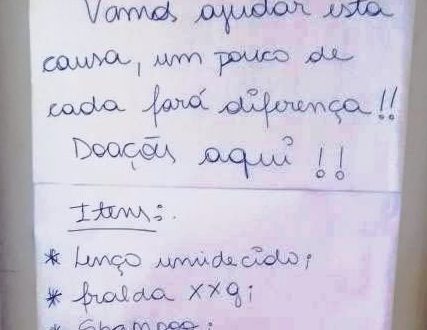 Vamos ajudar esta
causa, um pouco de
cada fará diferença!!
Doações aqui!!
Itens:.
* Lenço umidecido;
* fralda XXg;
* Shampoo;